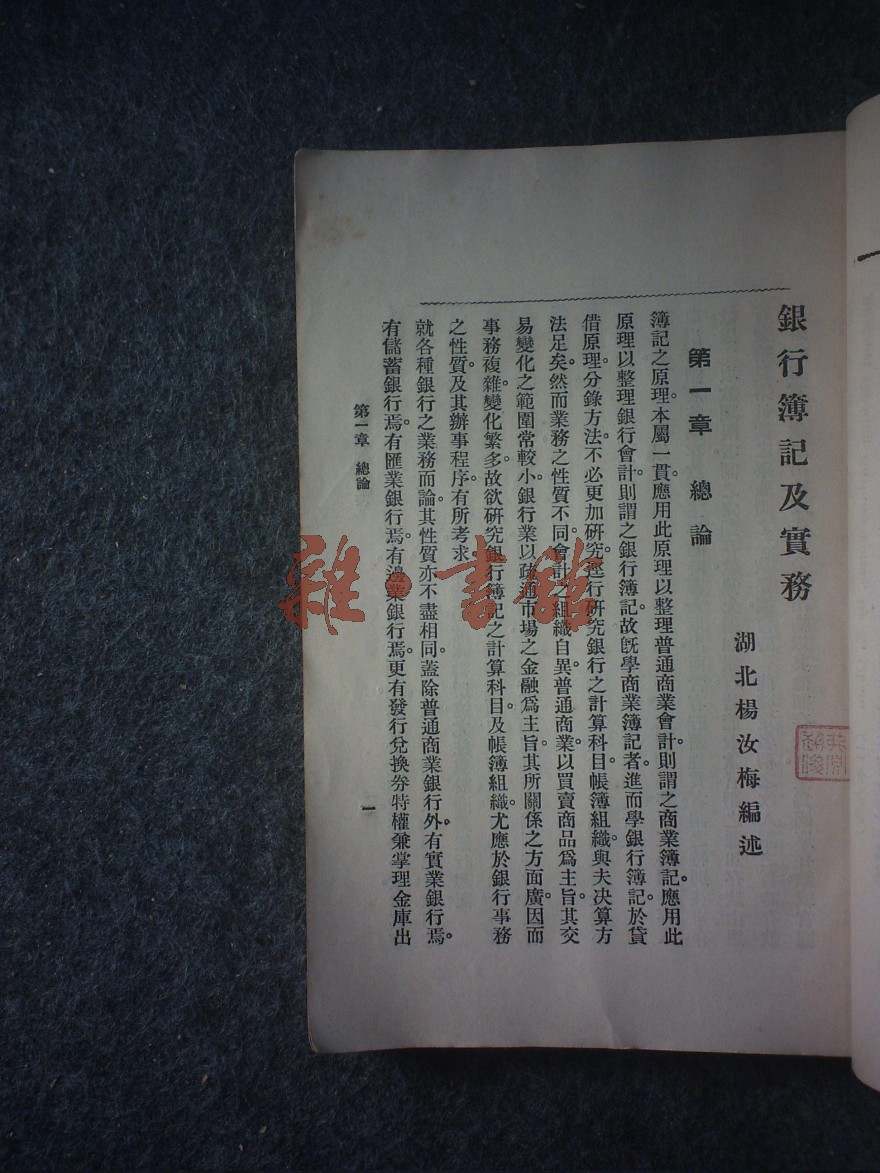 銀行簿記及實務
湖北楊汝梅編述
第一章 總論
簿記之原理。本屬一貫。應用此原理以整理普通商業會計。則謂之商業簿記。應用此
原理以整理銀行會計。則謂之銀行簿記。故旣學商業簿記者。進而學銀行簿記。於貸
借原理。分錄方法。不必更加硏究。逕行硏究銀行之計算科目。帳簿組織。與夫決算方
法足矣。然而業務之性質不同。會計之組織自異。普通商業。以買賣商品爲主旨。其交
易變化之範圍常較小。銀行業以疏通市場之金融爲主旨。其所關係之方面廣。因而
事務複雜。變化繁多。故欲硏究銀行簿記之計算科目。及帳簿組織。尤應於銀行事務
之性質。及其辦事程序。有所考求。
就各種銀行之業務而論。其性質亦不盡相同。蓋除普通商業銀行外。有實業銀行焉。
有儲蓄銀行焉。有匯業銀行焉。有邊業銀行焉。更有發行兌換劵特權兼掌理金庫出
第一章 總論
一
雜·書館